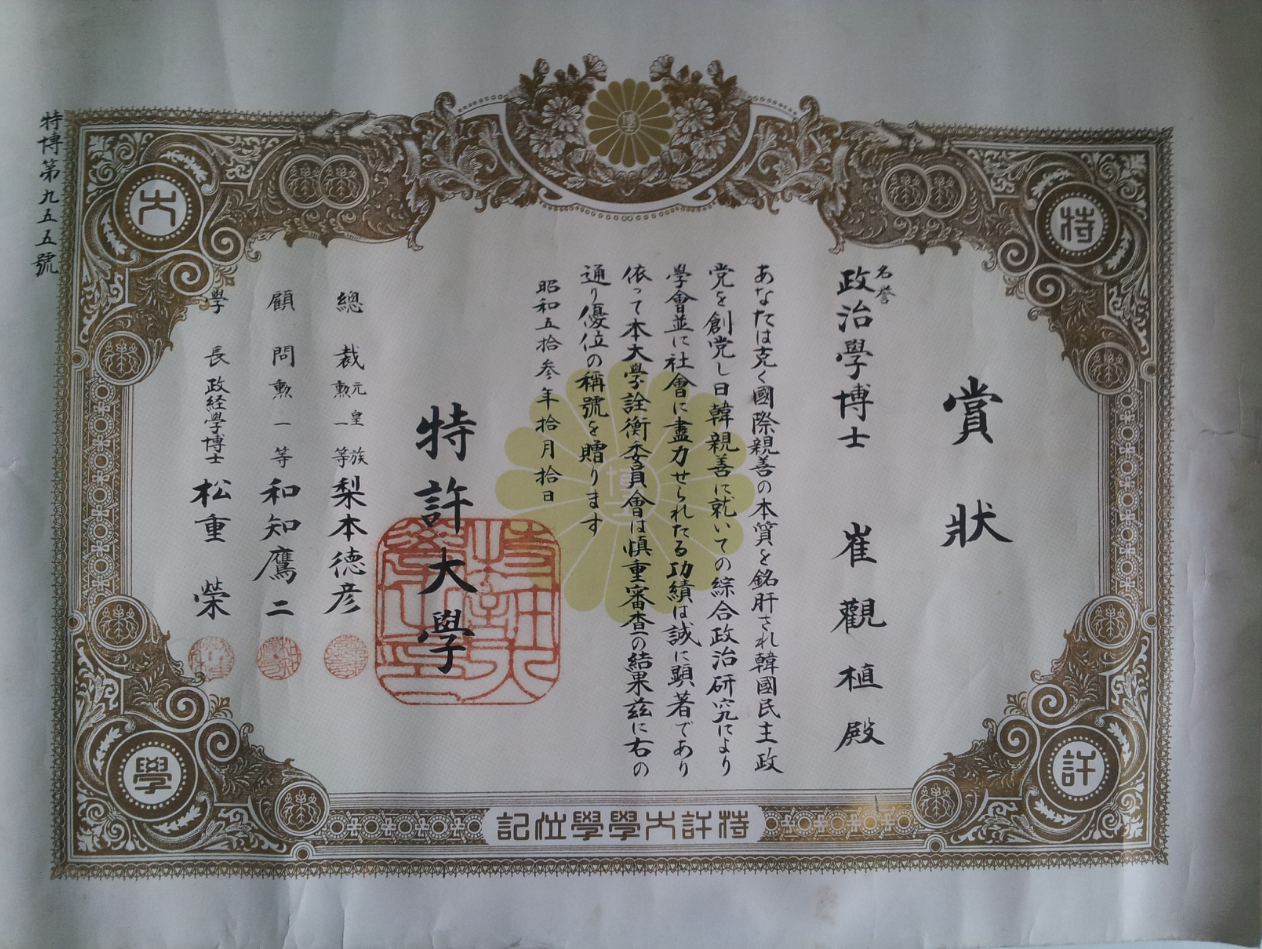 賞狀
名誉
政治學博士 崔觀植殿
あなたは克く國際親善の本質を銘肝され韓國民主政
党を創党し日韓親善に就いての綜合政治研究により
學會並に社會に盡力せられたる功績は誠に顕著であり
依って本大學詮衡委員會は慎重審査の結果茲に右の
通り優位の稱號を贈ります
昭和五拾叁年拾月拾日
特許大學
總裁 元皇族 勲一等 梨本徳彦
顧問 勲一等 和知鷹二
學長 政経學博士 松重榮
特博第九五五號
特
許
大
學
博
特許大學學位記